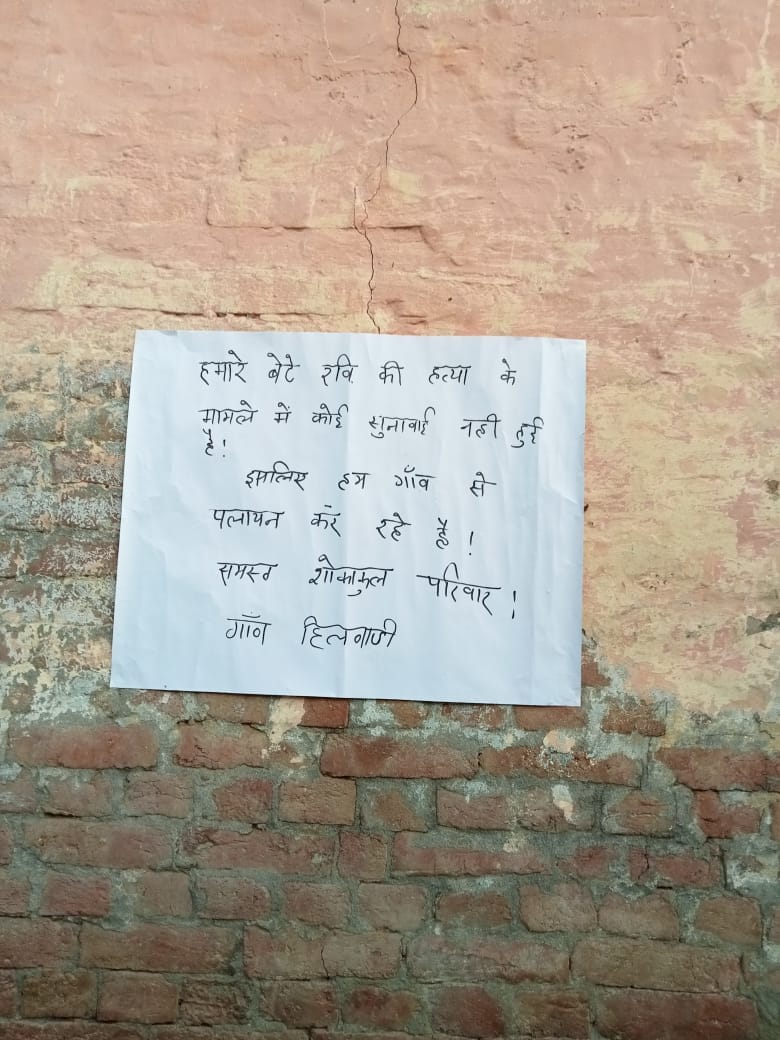 हमारे बेटे रवि की हत्या के
मामले में कोई सुनावाई नही हुई
है!
इसलिए हम गाँव से
पलायन कर रहे है!
समस्त शोकाकुल परिवार!
गाँव हिलवाडी